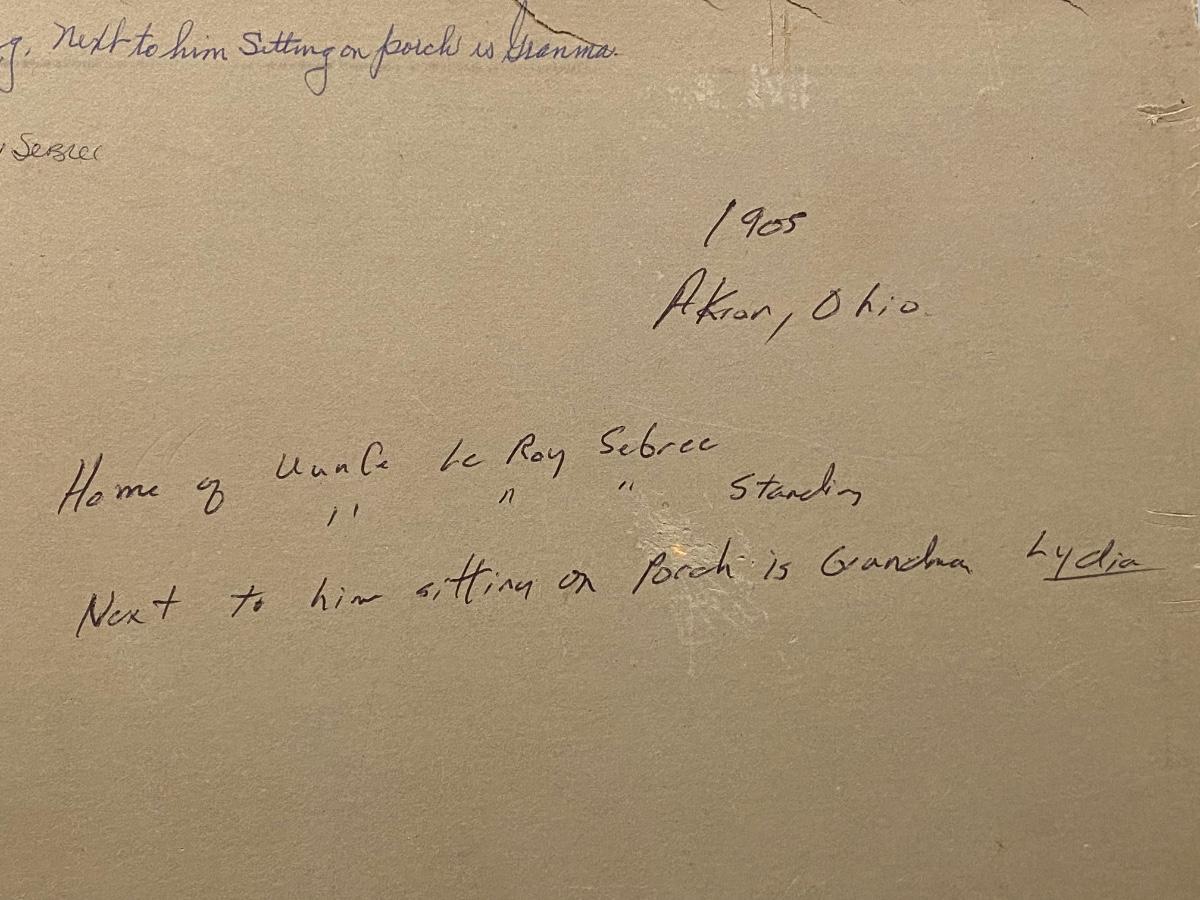 g. Next to him Sitting on porch is Granma.
Sebree
1905
Akron, Ohio.
Home of Uunle Le Roy Sebree
" " " Standing
Next to him sitting on Porch is Grandma Lydia